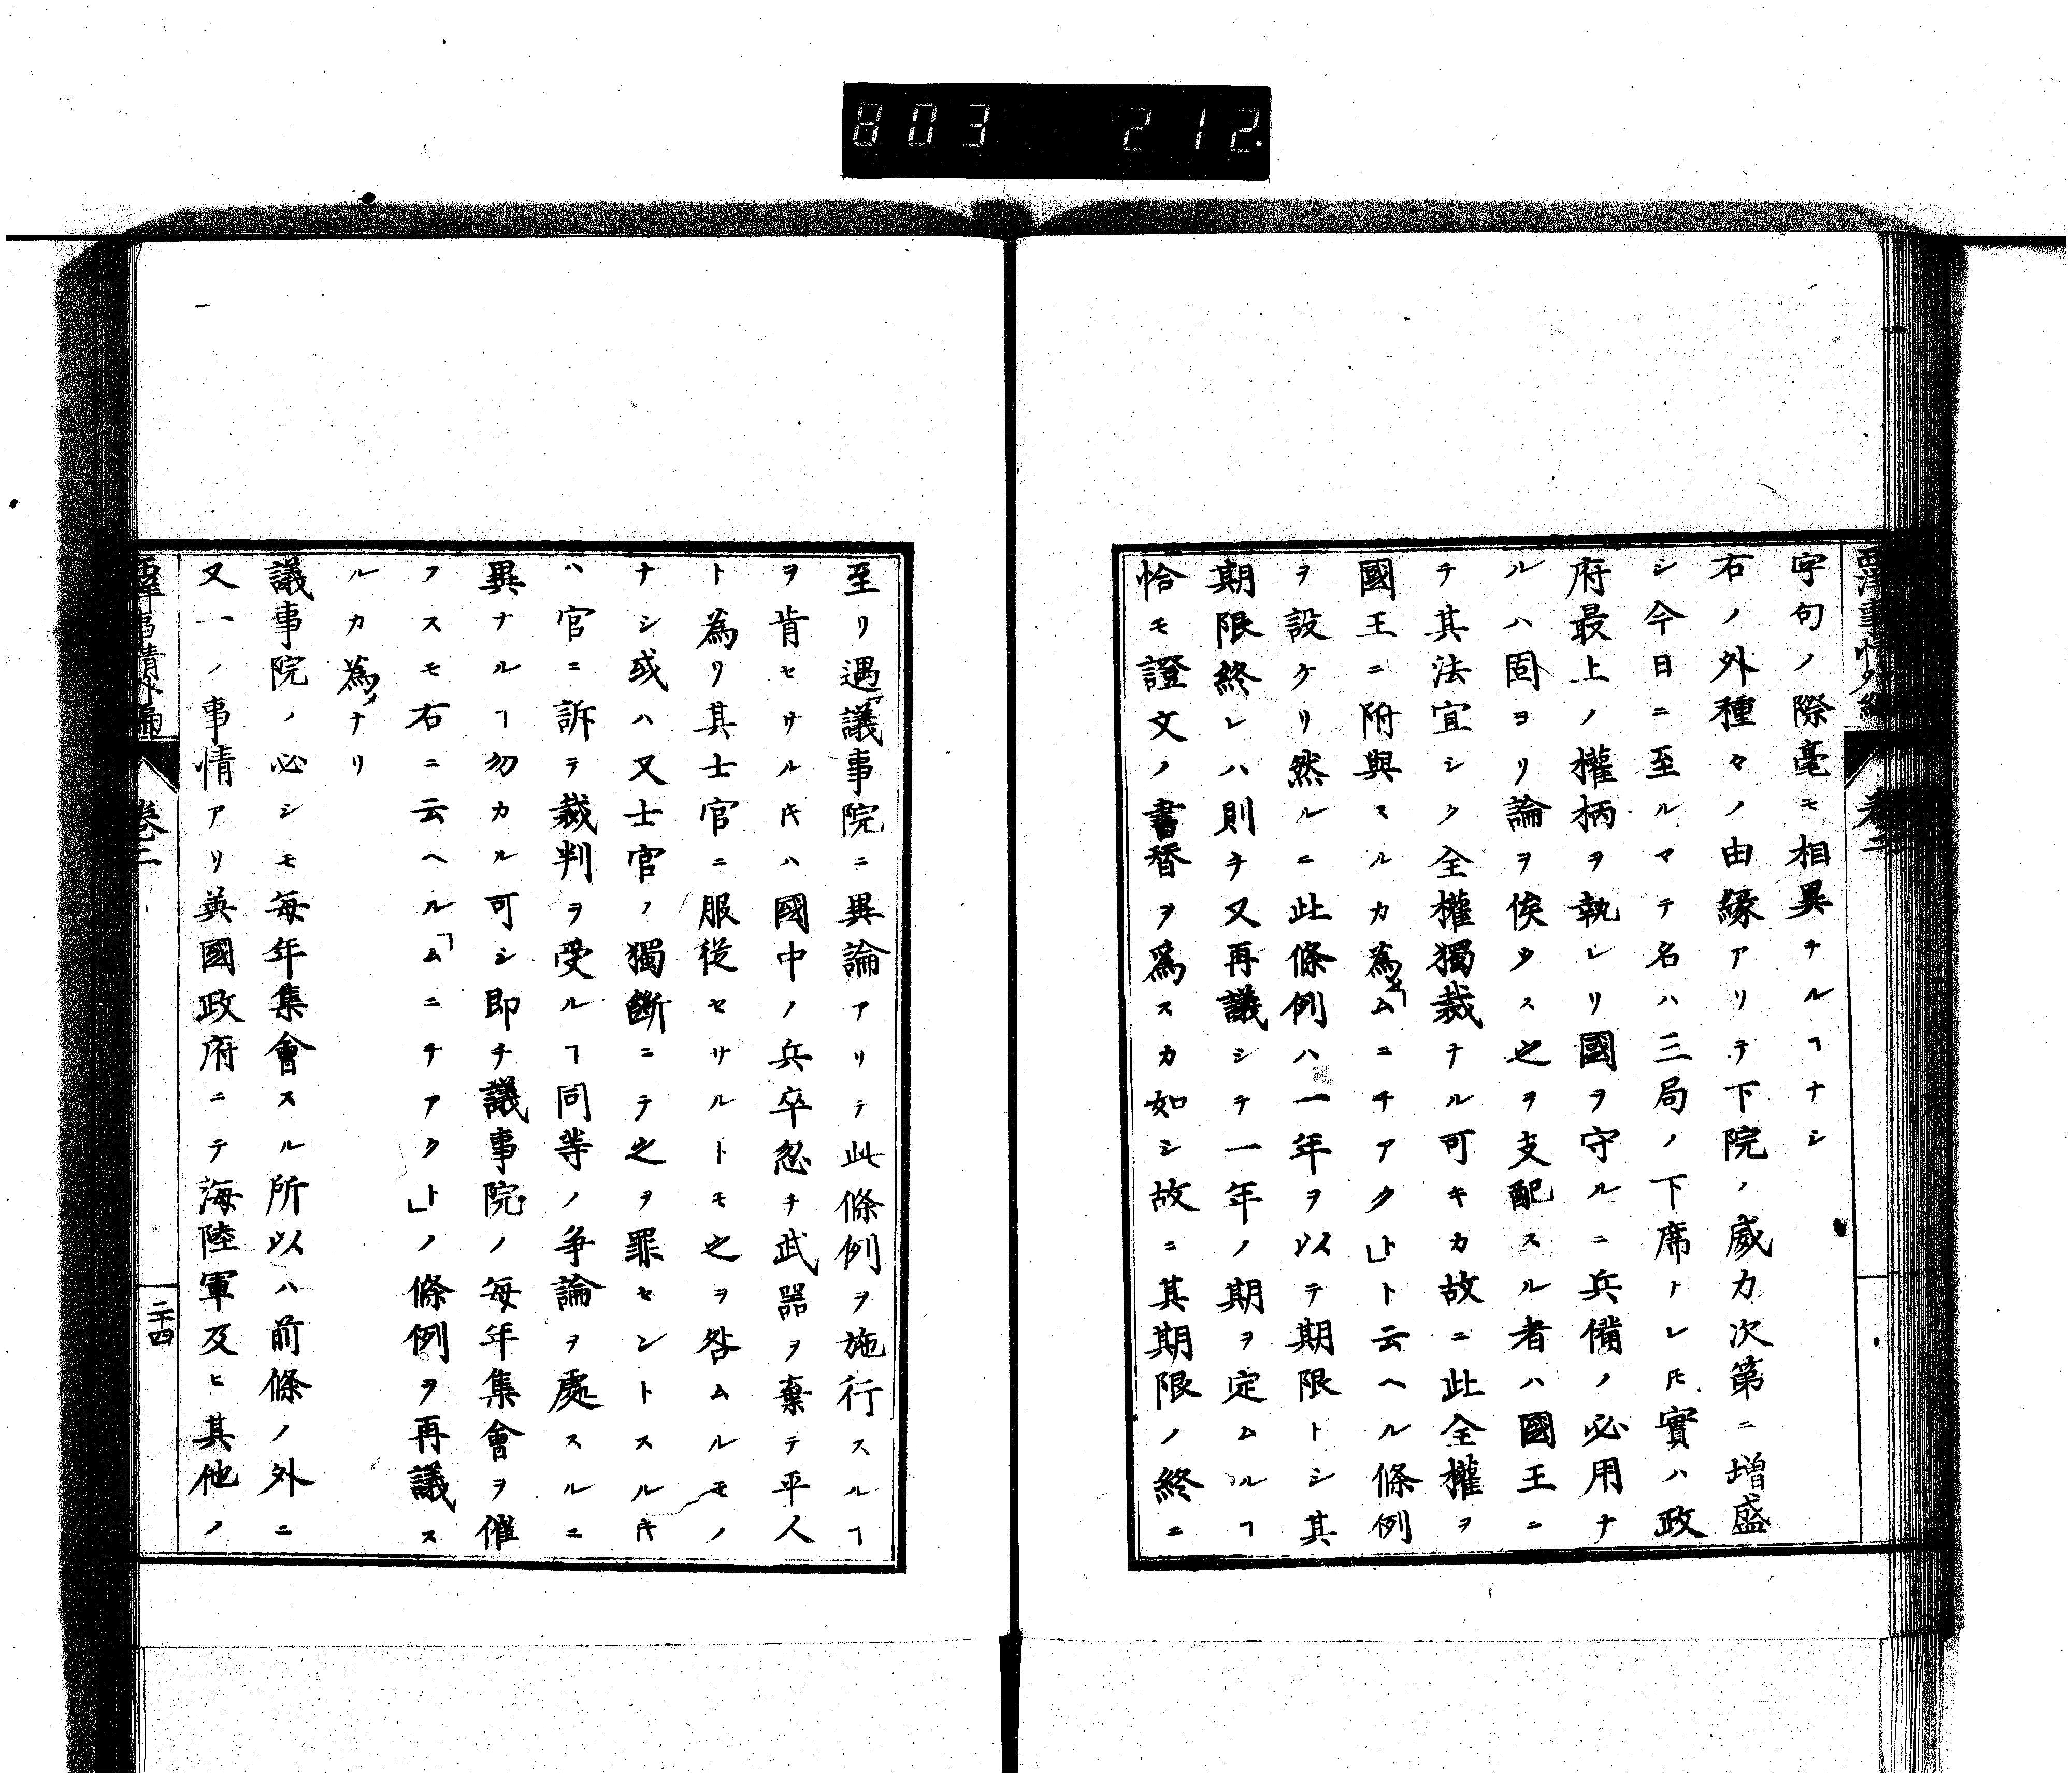 803 212.
西洋事情外編
卷二
字句ノ際毫モ相異ナルヿナシ
右ノ外種々ノ由縁アリテ下院ノ威力次第ニ増盛
シ今日ニ至ルマテ名ハ三局ノ下席トレ𪜈實ハ政
府最上ノ權柄ヲ執レリ國ヲ守ルニ兵備ノ必用ナ
ルハ固ヨリ論ヲ俟タス之ヲ支配スル者ハ國王ニ
テ其法宜シク全權獨裁ナル可キカ故ニ此全權ヲ
國王ニ附與スルカ為メ「ムニチアクト」ト云ヘル條例
ヲ設ケリ然ルニ此條例ハ一年ヲ以テ期限トシ其
期限終レハ則チ又再議シテ一年ノ期ヲ定ムルヿ
恰モ證文ノ書替ヲ爲スカ如シ故ニ其期限ノ終ニ
至リ遇マ議事院ニ異論アリテ此條例ヲ施行スルヿ
ヲ肯セサルキハ國中ノ兵卒忽チ武器ヲ棄テ平人
ト為リ其士官ニ服從セサルトモ之ヲ咎ムルモノ
ナシ或ハ又士官ノ獨斷ニテ之ヲ罪セントスルキ
ハ官ニ訴テ裁判ヲ受ルヿ同等ノ爭論ヲ處スルニ
異ナルヿ勿カル可シ即チ議事院ノ每年集會ヲ催
フスモ右ニ云ヘル「ムニチアクト」ノ條例ヲ再議ス
ルカ為メナリ
議事院ノ必シモ每年集會スル所以ハ前條ノ外ニ
又一ノ事情アリ英國政府ニテ海陸軍及ヒ其他ノ
西洋事情外編
卷二
二十四